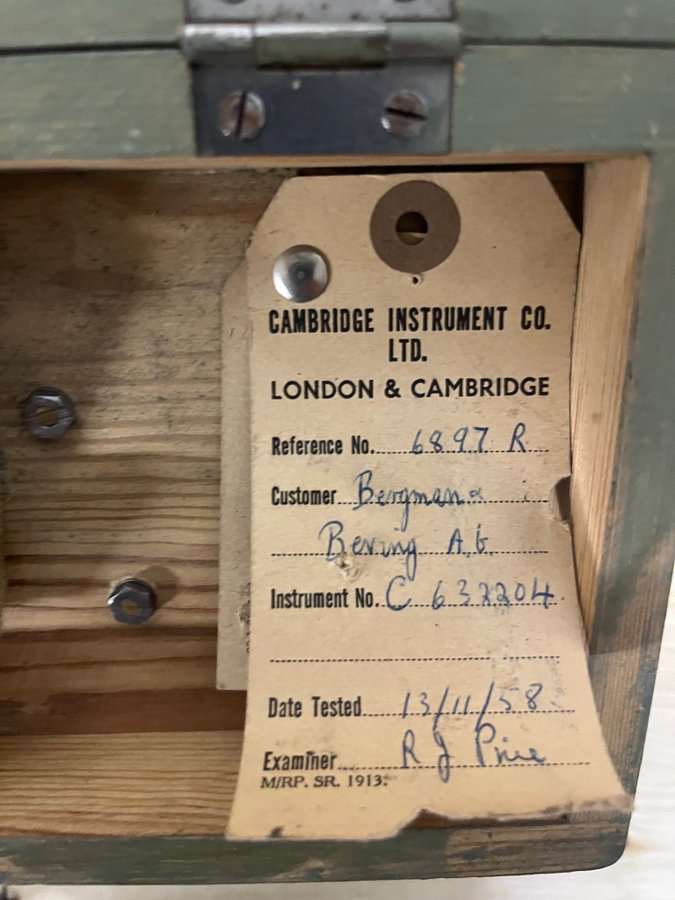 CAMBRIDGE INSTRUMENT CO.
LTD.
LONDON & CAMBRIDGE
Reference No. 6897 R
Customer Bergman &
Beving A.G.
Instrument No. C 632204.
Date Tested 13/11/58.
Examiner R J Price
M/RP. SR. 1913.